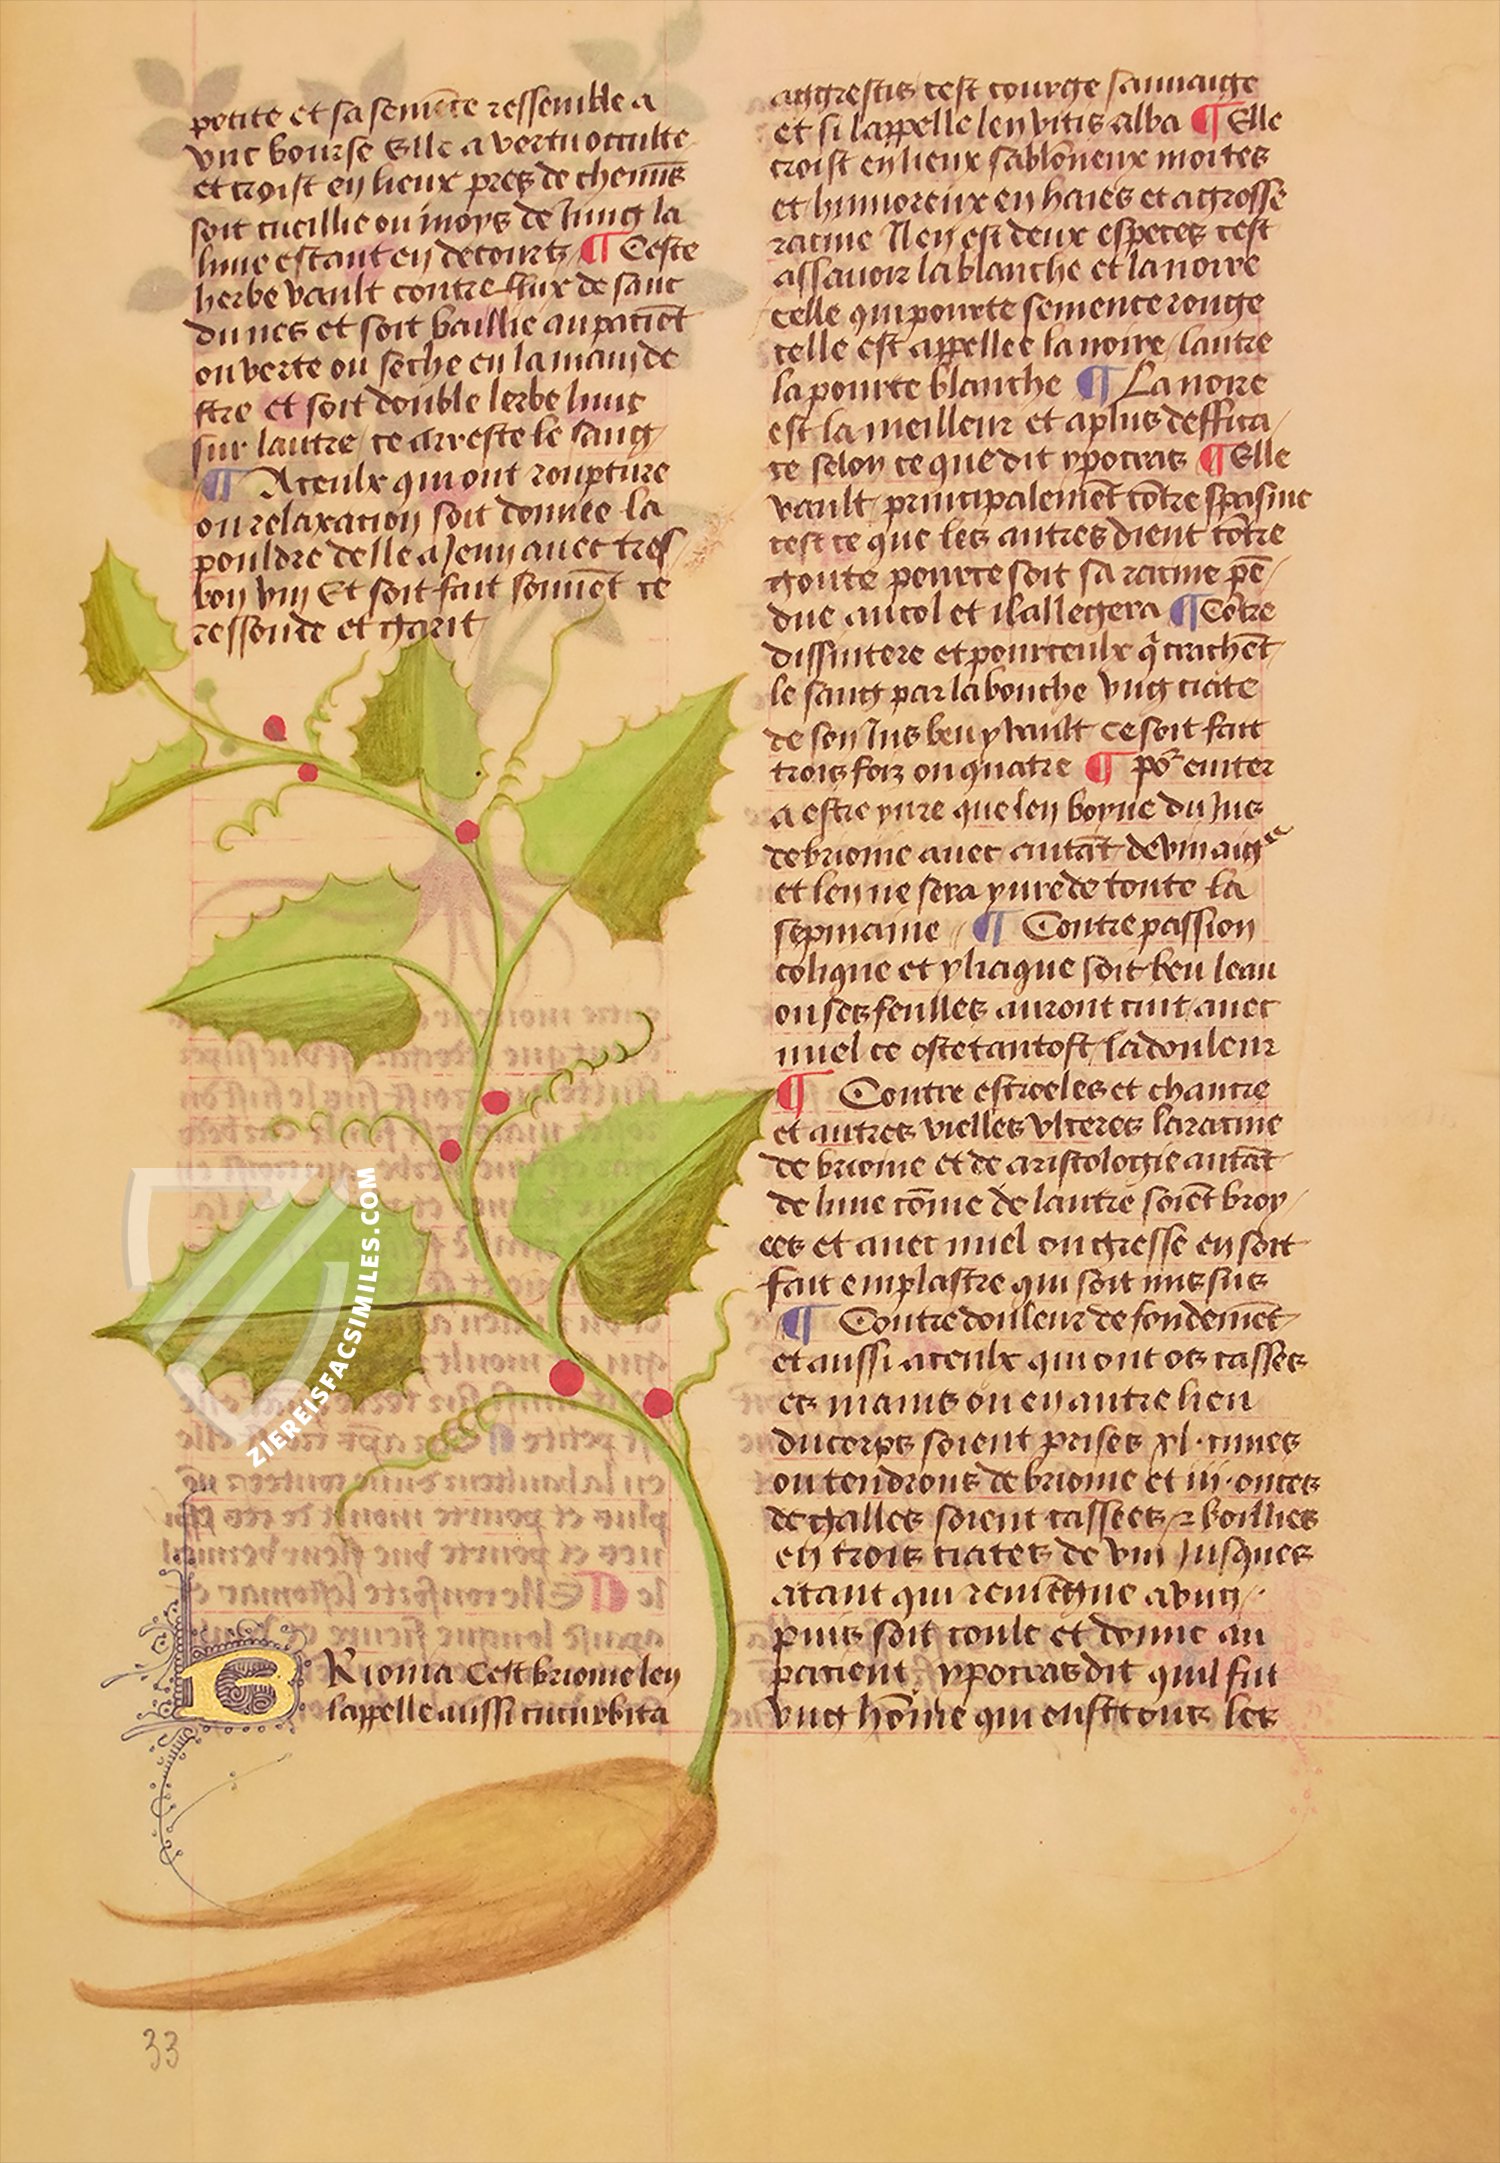 petite et sa semēce ressemble a
vne bourse Elle a vertu occulte
et croist en lieux pres de chemīs
soit cueillie ou moys de Iung la
lune estant en decours ¶ Ceste
herbe vault contre flux de sanc
du nes et soit baillie au paciēt
ou verte ou seche en la main de
stre et soit double lerbe lune
sur lautre / ce arreste le sang
¶ A ceulx qui ont roupture
ou relaxacion soit donnee la
pouldre delle a Ieun auec tres
bon vin Et soit fait souuēt ce
ressoude et garit
BRionia Cest brionie len
lappelle aussi cucurbita
aggrestis cest courge sauuaige
et si lappelle len vitis alba ¶ Elle
croist en lieux sablōneux moites
et humoreux en haies et a grosse
racine Il en est deux especes cest
assauoir la blanche et la noire
celle qui pourte semence rouge
celle est appellee la noire / lautre
la pourte blanche ¶ La noire
est la meilleur et a plus deffica /
ce selon ce que dit ypocras ¶ Elle
vault principalemēt cōtre spasme
cest ce que les autres dient cōtre
goute pource soit sa racine pē /
due au col et il allegera ¶ Cōtre
dissintere et pour ceulx q̄ crachēt
le sang par la bouche vng ciate
de son Ius beu y vault ce soit fait
trois foiz ou quatre ¶ po᷑ euiter
a estre yure que len boyue du Ius
de brionie auec autāt de vinaigᵉ
et len ne sera yure de toute la
sepmaine // ¶ Contre passion
colique et yliaque soit beu leau
ou ses feulles auront cuit auec
miel ce oste tantost la douleur
¶ Contre estroeles et chancre
et autres vielles vlceres la racine
de brionie et de aristologie autāt
de lune cōme de lautre soiēt broy /
ees et auec miel ou gresse en soit
fait emplastre qui soit mis sus
¶ Contre douleur de fondemēt
et aussi a ceulx qui ont os casses
es mains ou en autre lieu
du corps soient prises xl · cimes
ou tendrons de brionie et iij · onces
de galles soient cassees ⁊ boillies
en trois ciates de vin Iusques
atant qui remēgne a vng / ·
puis soit coule et donne au
pacient / ypocras dit quil fut
vng hōme qui eust tous les
33
ZIEREISFACSIMILES.COM